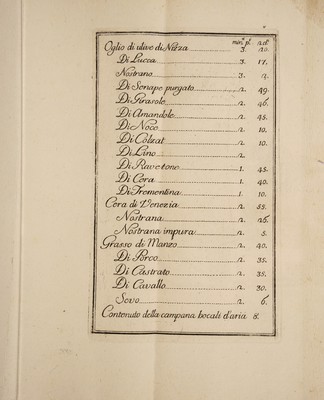 min.ti p.i 2.di
Oglio di ulivo di Nizza 3. 20.
Di Lucca 3. 17.
Nostrano 3. 2.
Di Senape purgato 2. 49.
Di Girasole 2. 46.
Di Amandole 2. 45.
Di Noce 2. 10.
Di Colzat 2. 10.
Di Lino 2.
Di Ravetone 1. 45.
Di Cera 1. 40.
Di Trementina 1. 10.
Cera di Venezia 2. 55.
Nostrana 2. 26.
Nostrana impura 2. 5.
Grasso di Manzo 2. 40.
Di Porco 2. 35.
Di Castrato 2. 35.
Di Cavallo 2. 30.
Sevo 2. 6.
Contenuto della campana bocali d'aria 8.